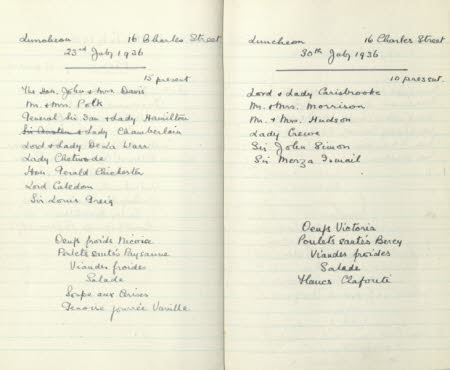 Luncheon 16 Charles Street
23rd July 1936
15 present
The Hon. John & Mrs Davis
Mr. & Mrs. Polk
General Sir Ian & Lady Hamilton
Sir Austen & Lady Chamberlain
Lord & Lady De La Warr
Lady Chetwode
Hon. Gerald Chichester
Lord Caledon
Sir Louis Greig
Oeufs froids Nicoise
Poulets sautés Paysanne
Viandes froides
Salade
Soupe aux Cerises
Genoise fourrée Vanille
Luncheon 16 Charles Street
30th July 1936
10 present.
Lord & Lady Carisbrooke
Mr. & Mrs. Morrison
Mr. & Mrs. Hudson
Lady Crewe
Sir John Simon
Sir Merza Ismail
Oeufs Victoria
Poulets sautés Bercy
Viandes froides
Salade